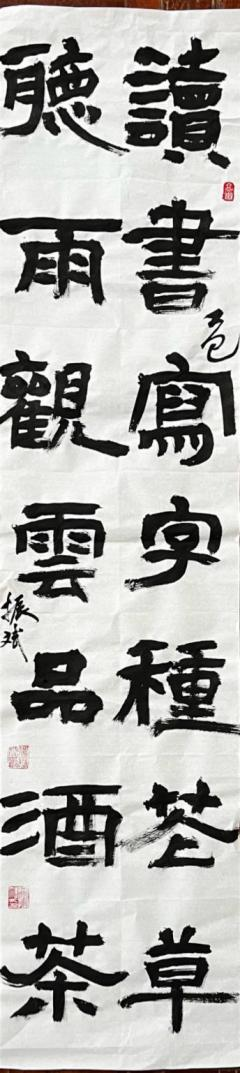 讀書寫字種花草
聽雨觀雲品酒茶
振斌